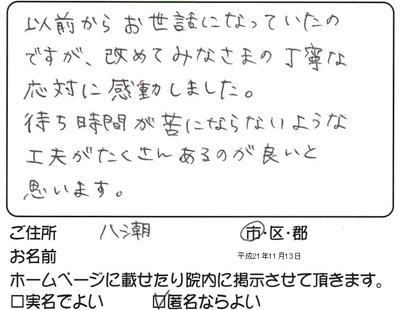 以前からお世話になっていたの
ですが、改めてみなさまの丁寧な
応対に感動しました。
待ち時間が苦にならないような
工夫がたくさんあるのが良いと
思います。
ご住所 八潮 市・区・郡
お名前 平成21年11月13日
ホームページに載せたり院内に掲示させて頂きます。
□実名でよい ☑匿名ならよい